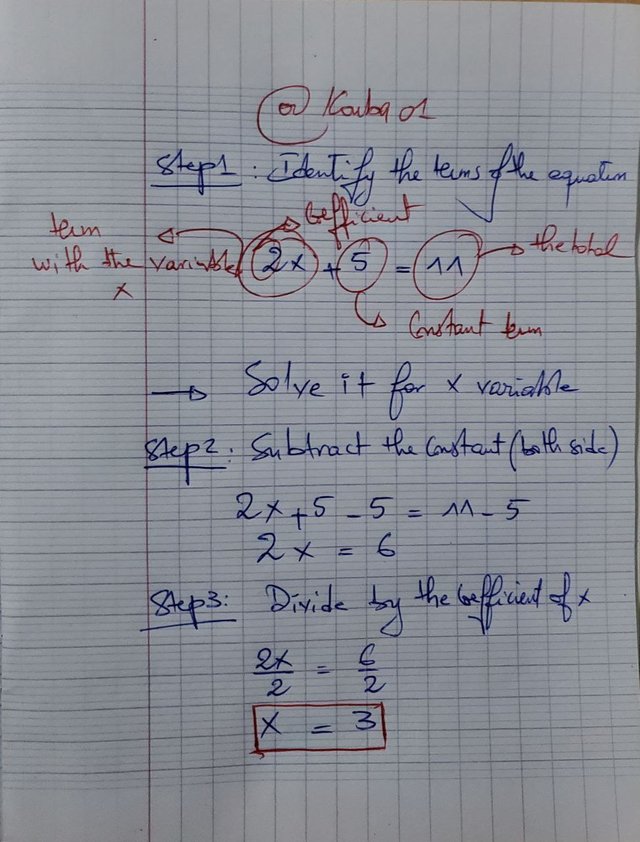 Kouba 01
Step1: Identify the terms of the equation
Coefficient
term
with the variable
x
2x + 5 = 11
the total
Constant term
→ Solve it for x variable
Step2: Subtract the Constant (both side)
2x + 5 - 5 = 11 - 5
2x = 6
Step3: Divide by the Coefficient of x
2x/2 = 6/2
x = 3